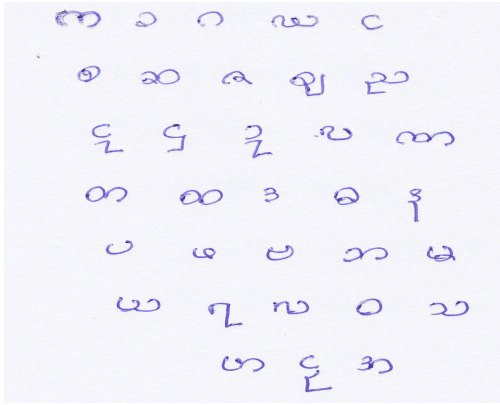 က ခ ဂ ဃ င
စ ဆ ဇ ဈ ည
ဋ ဌ ဍ ဎ ဏ
တ ထ ဒ ဓ န
ပ ဖ ဗ ဘ မ
ယ ရ လ ဝ သ
ဟ ဠ အ